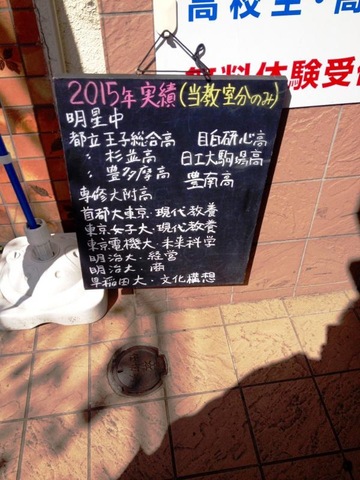 高校生・高
無料体験受
2015年実績(当教室分のみ)
明星中
都立王子総合高 目白研心高
〃 杉並高 日工大駒場高
〃 豊多摩高 豊南高
専修大附高
首都大東京・現代教養
東京女子大・現代教養
東京電機大・未来科学
明治大・経営
明治大・商
早稲田大・文化構想